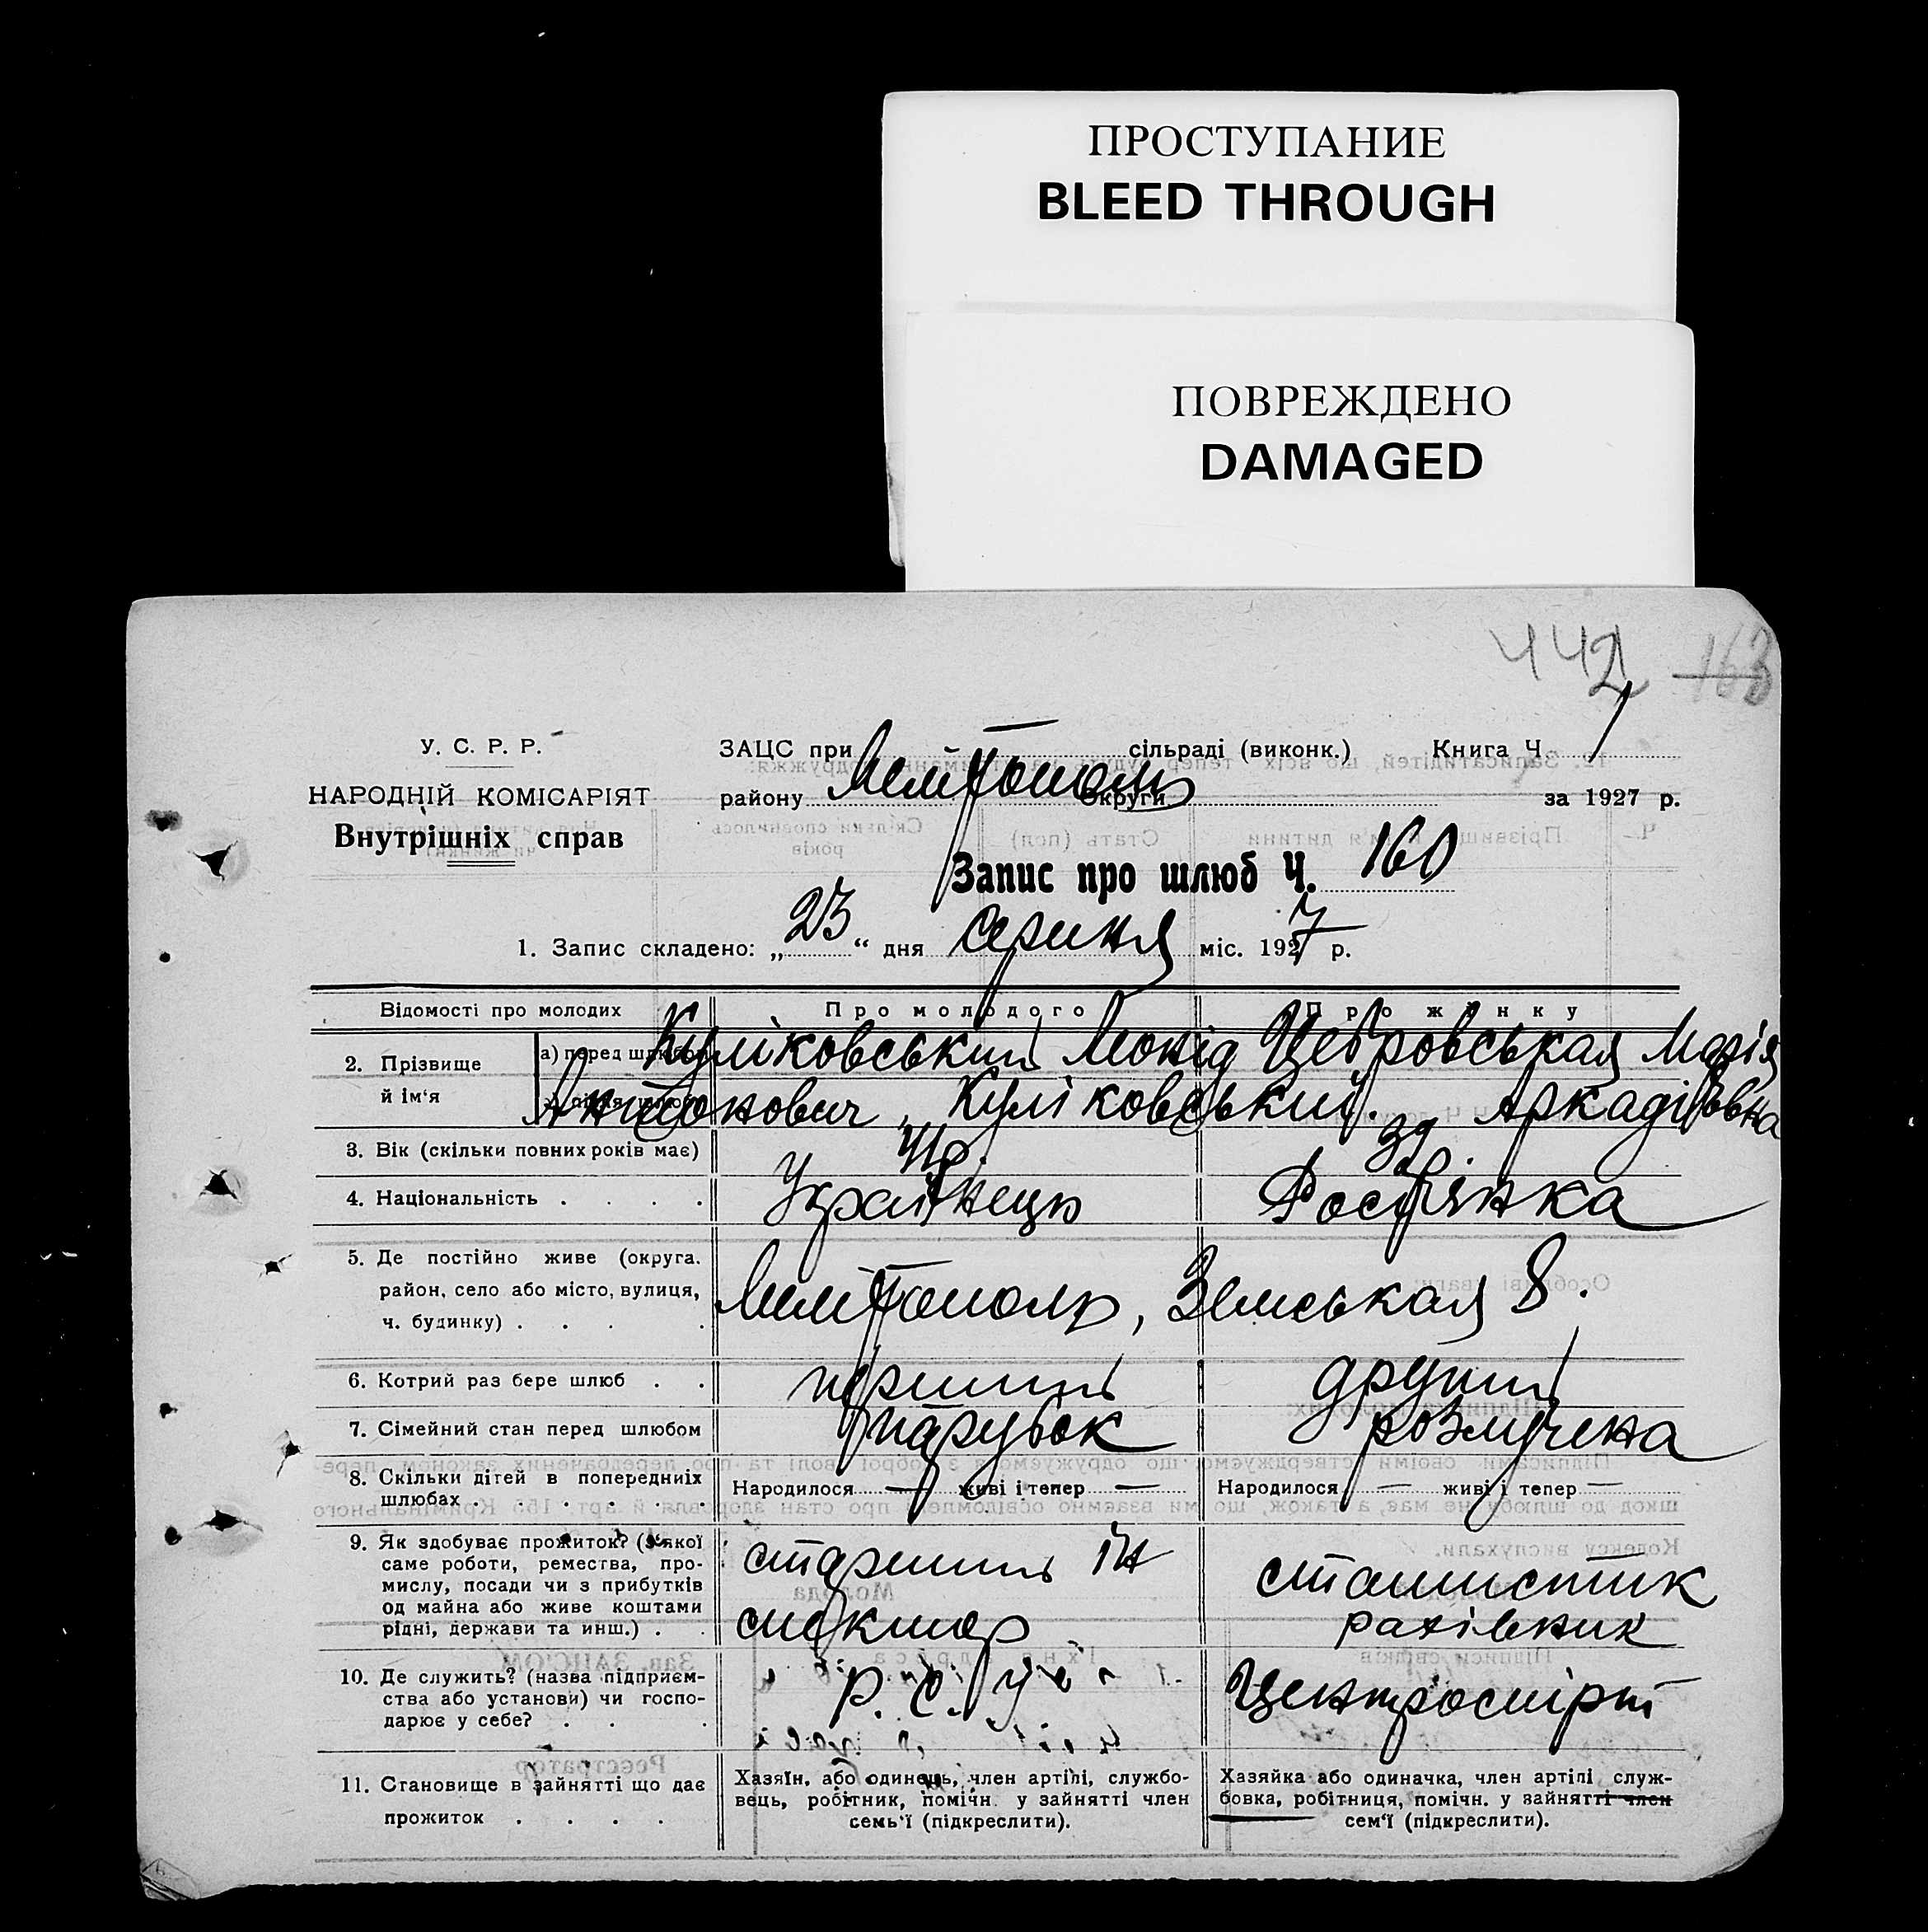 ПРОСТУПАНИЕ
BLEED THROUGH
ПОВРЕЖДЕНО
DAMAGED
442 163
У. С. Р. Р.
НАРОДНІЙ КОМІСАРІЯТ
Внутрішніх справ
ЗАЦС при Мелітополь сільраді (виконк.) Книга Ч 1
району округи за 1927 р.
Запис про шлюб Ч. 160
1. Запис складено: „23“ дня серпня міс. 1927 р.
Відомості про молодих Про молодого Про жінку
2. Прізвище й ім‘я
а) перед шлюбом Куліковський Леонід Цебровськая Марія
б) після шлюбу Антонович, Куліковський. Аркадіївна
3. Вік (скільки повних років має)
4. Національність . . . . Українець Росіянка
5. Де постійно живе (округа.
район, село або місто, вулиця,
ч. будинку) . . . .
Мелітополь, Земськая 8.
6. Котрий раз бере шлюб . . перший другий
7. Сімейний стан перед шлюбом парубок розлучена
8. Скільки дітей в попередніх
шлюбах . . . . . .
Народилося — живі і тепер — Народилося — живі і тепер —
9. Як здобуває прожиток? (з якої
саме роботи, ремества, про-
мислу, посади чи з прибутків
од майна або живе коштами
рідні, держави та инш.) . .
старший ін
спектор
статистик
рахівник
10. Де служить? (назва підприєм-
ства або установи) чи госпо-
дарює у себе? . . .
Р. С. І. Центроспірт
11. Становище в зайнятті що дає
прожиток . . . .
Хазяїн, або одинець, член артілі, службо-
вець, робітник, помічн. у зайнятті член
семь‘ї (підкреслити).
Хазяйка або одиначка, член артілі служ-
бовка, робітниця, помічн. у зайнятті член
сем‘ї (підкреслити).